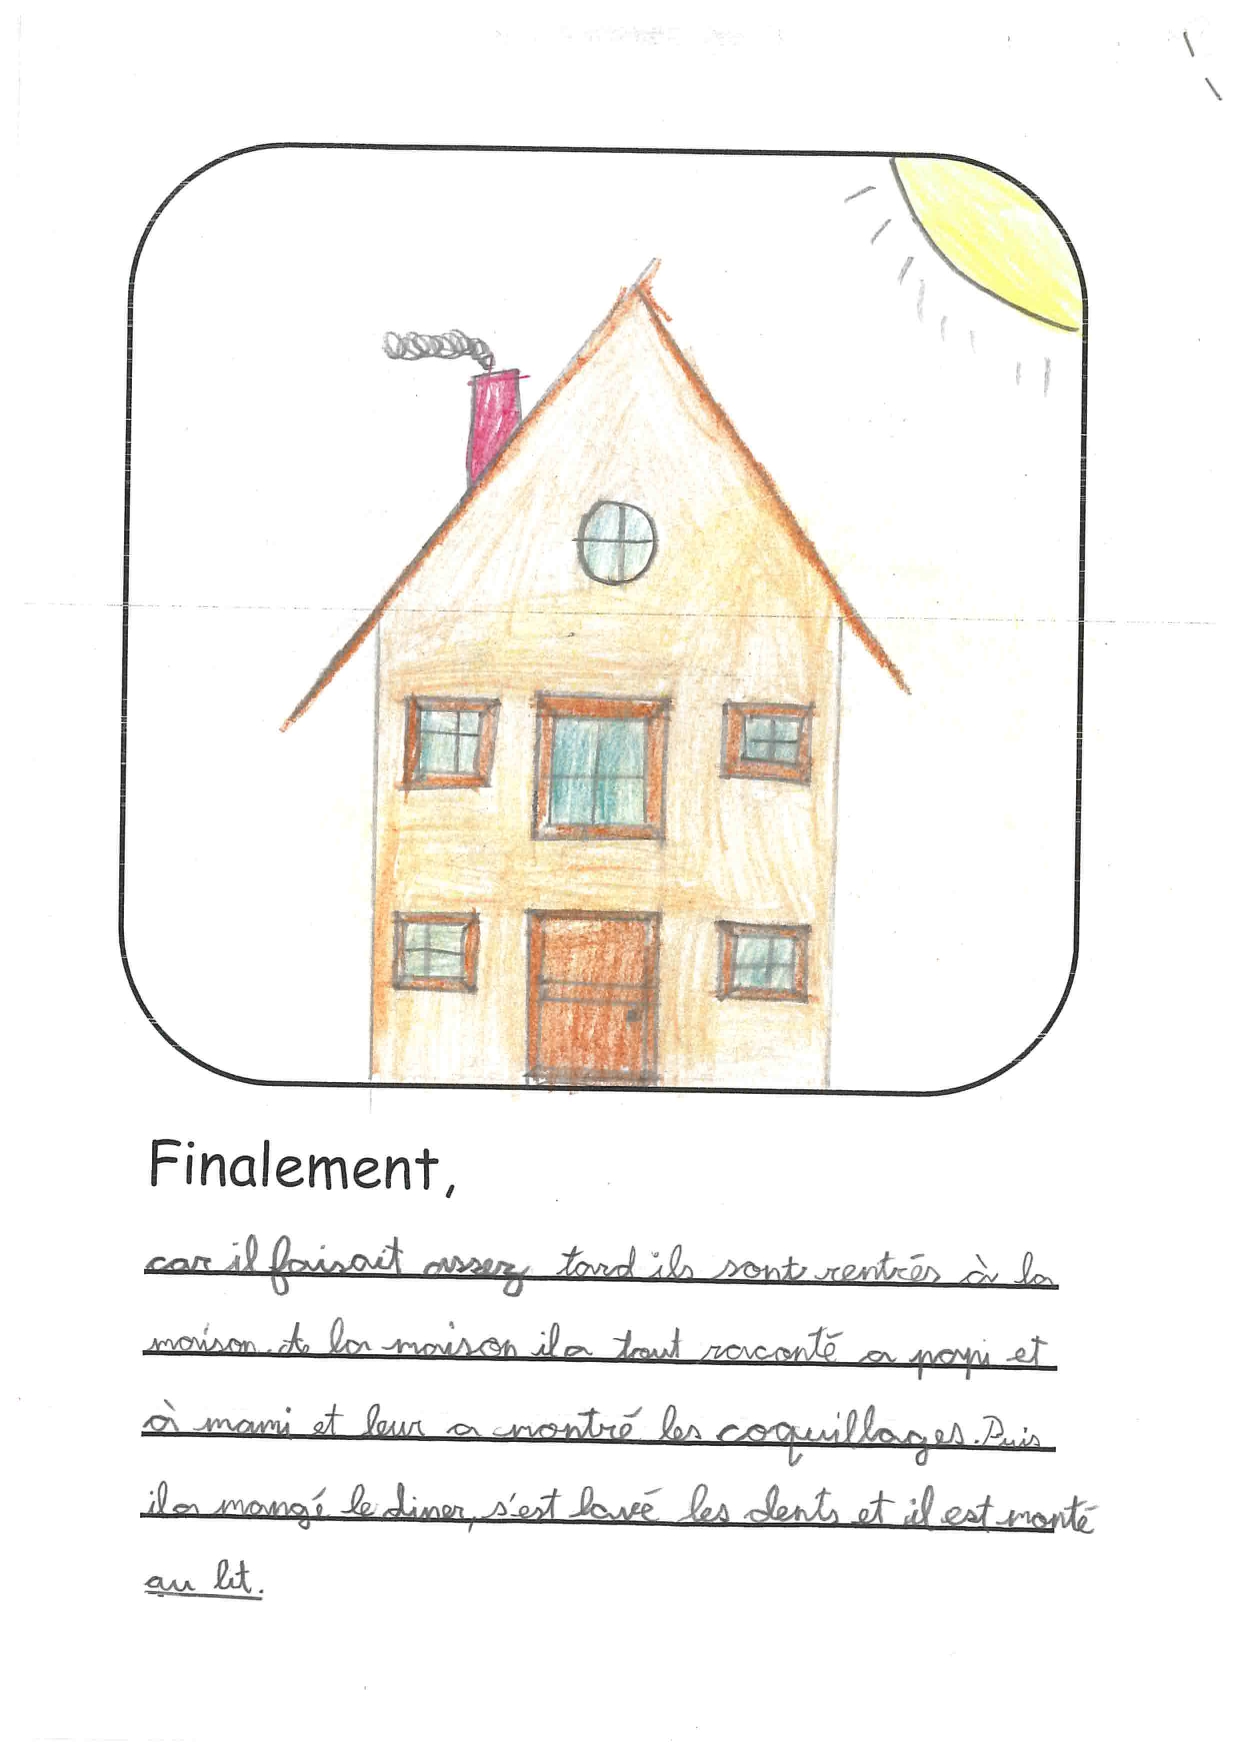 Finalement,
car il faisait assez tard ils sont rentrés à la
maison. A la maison il a tout raconté a papi et
à mami et leur a montré les coquillages. Puis
il a mangé le diner, s'est lavé les dents et il est monté
au lit.